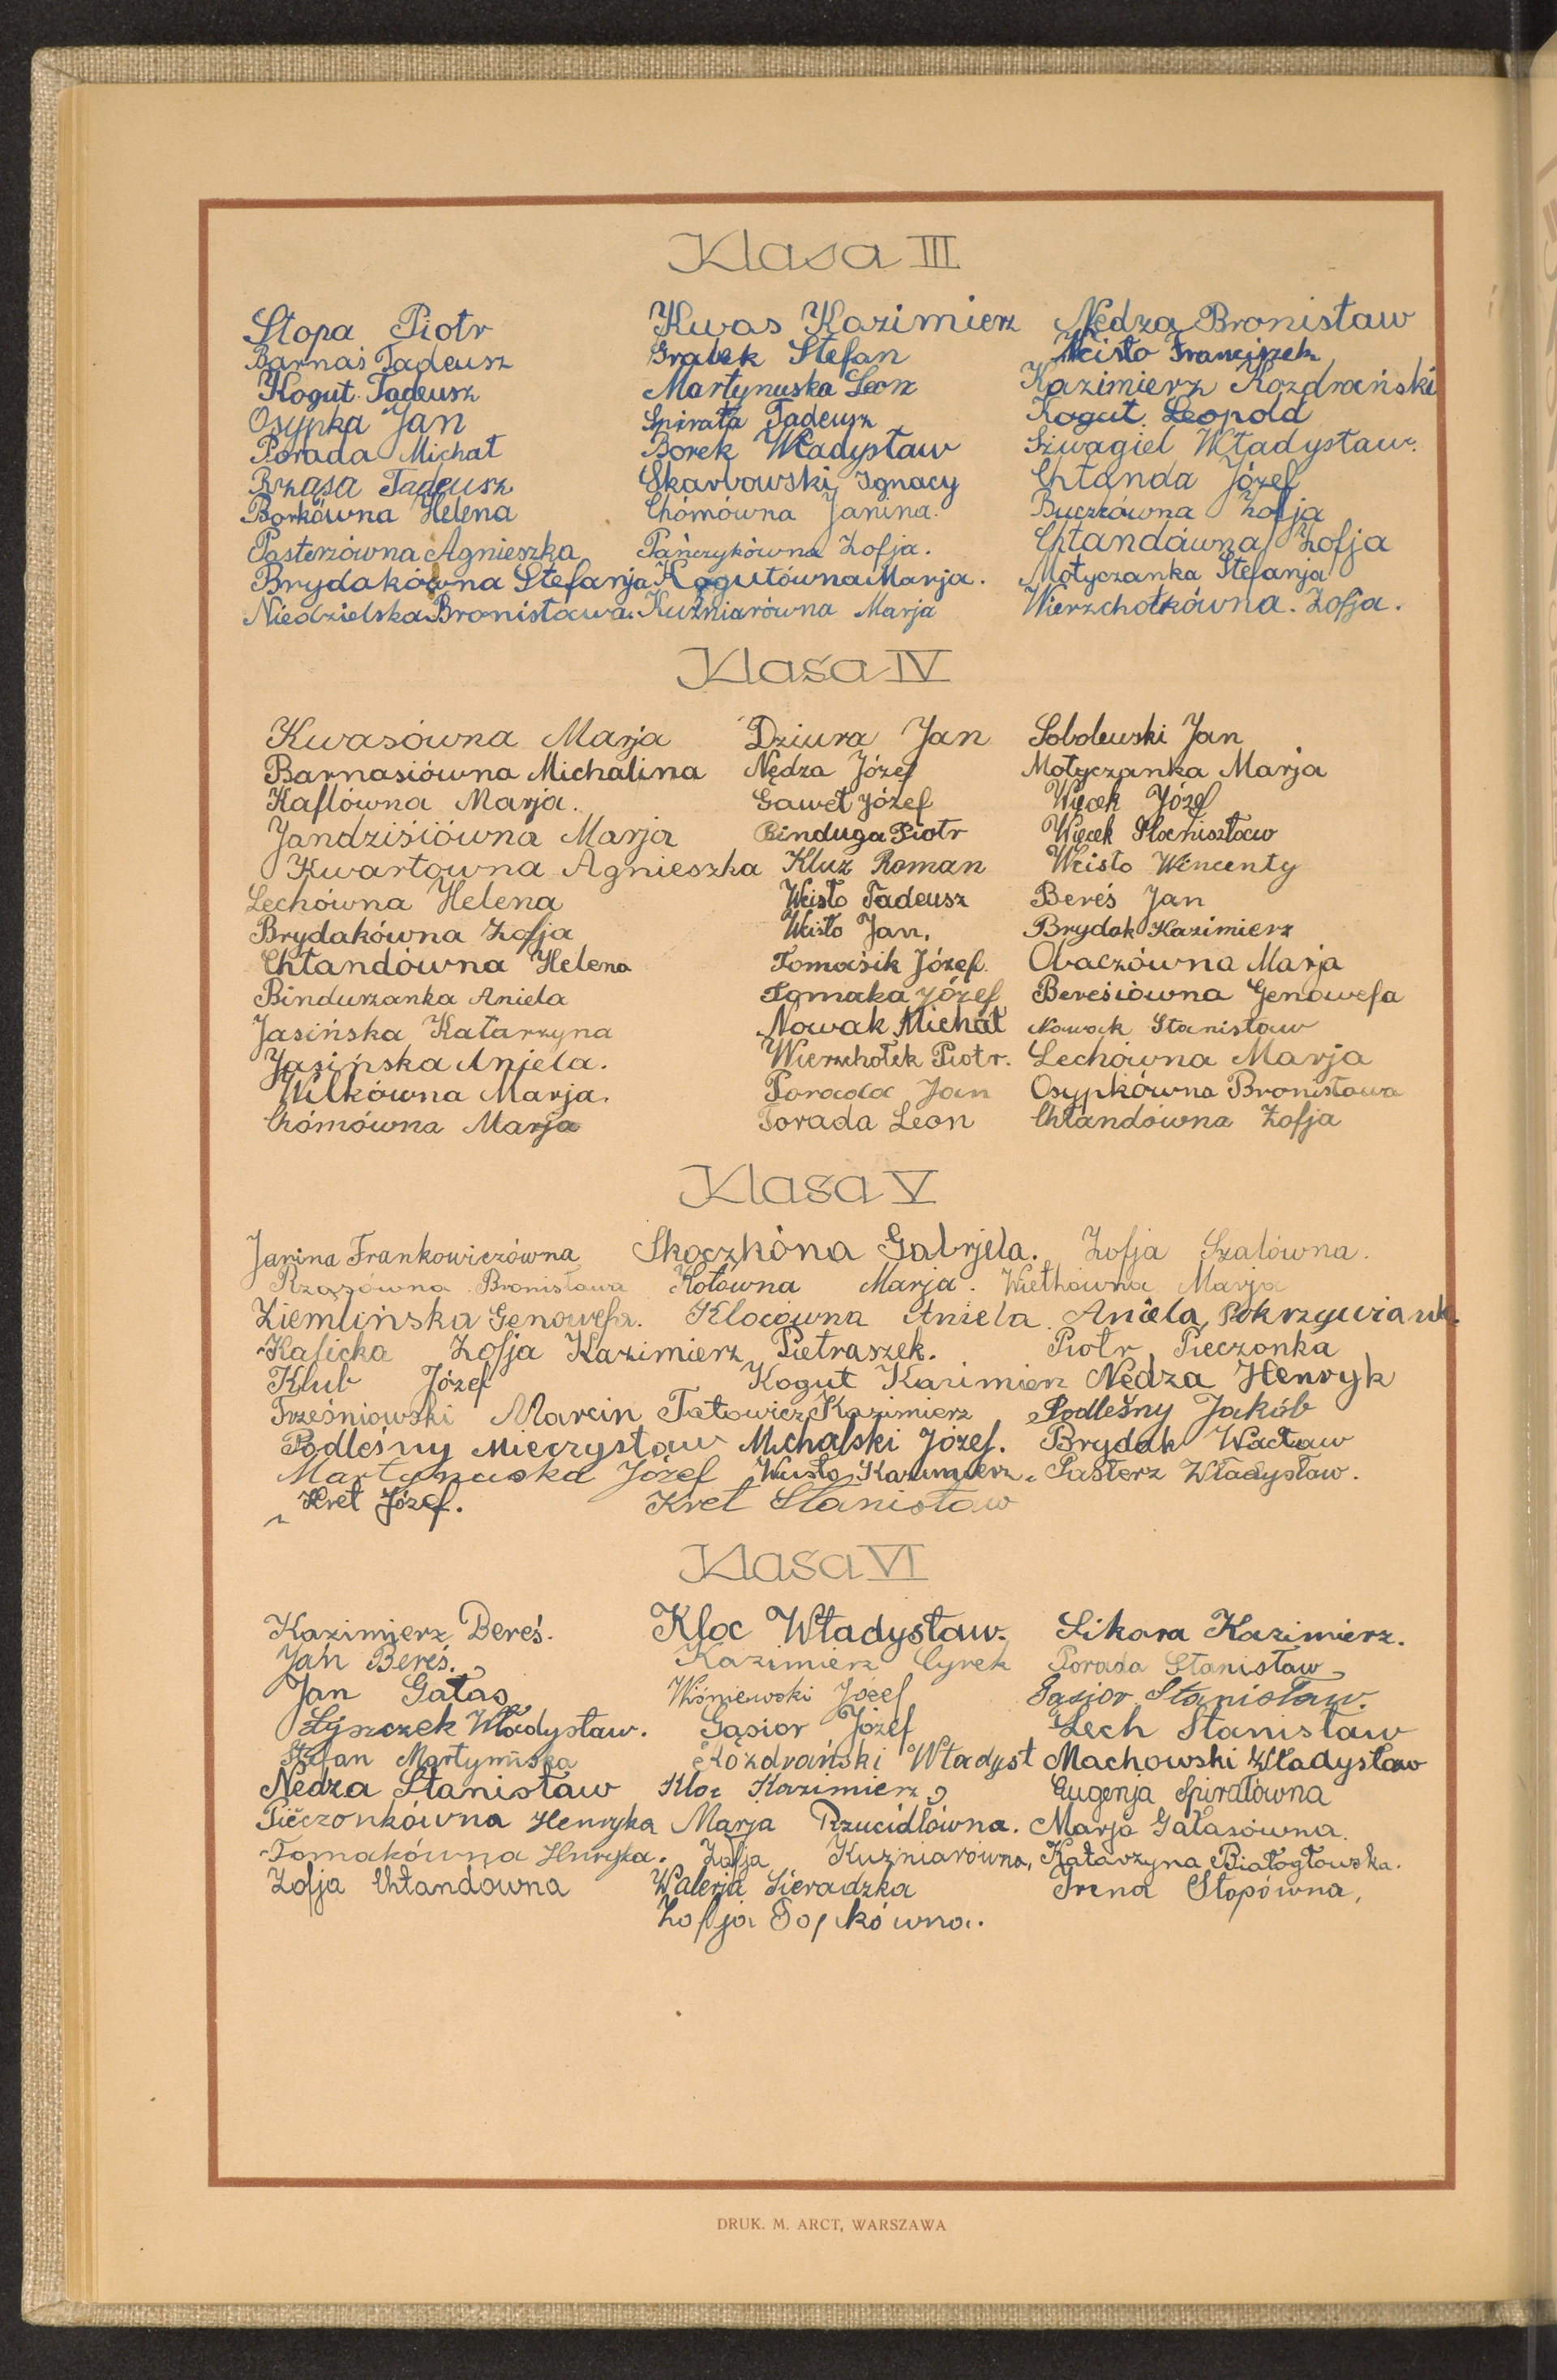 Klasa III
Stopa Piotr Kwas Kazimierz Nędza Bronisław
Barnaś Tadeusz Grabek Stefan Weisło Franciszek
Kogut Tadeusz Martynuska Leon Kazimierz Kozdrański
Osypka Jan Spirała Tadeusz Kogut Leopold
Porada Michał Borek Władysław Szwagiel Władysław.
Rząsa Tadeusz Skarbowski Ignacy Chłanda Józef
Borkówna Helena Chómówna Janina. Buczkówna Zofja
Pasterzówna Agnieszka Pańczykówna Zofja. Chłandówna Zofja
Brydakówna Stefanja Kogutówna Marja. Motyczanka Stefanja
Niedzielska Bronisława. Kuźniarówna Marja Wierzchołkówna. Zofja.
Klasa IV
Kwasówna Marja Dziura Jan Sobolewski Jan
Barnasiówna Michalina Nędza Józef Motyczanka Marja
Kaflówna Marja. Gaweł Józef Więcek Józef
Jandzisiówna Marja Binduga Piotr Więcek
Kwartowna Agnieszka Kluz Roman Weisło Wincenty
Lechówna Helena Weisło Tadeusz Bereś Jan
Brydakówna Zofja Weisło Jan. Brydak Kazimierz
Chłandówna Helena Tomasik Józef. Obaczówna Marja
Bindurzanka Aniela Tomaka Józef Bereśiówna Genowefa
Jasińska Katarzyna Nowak Michał Nowak Stanisław
Jasińska Aniela. Wierzchołek Piotr. Lechówna Marja
Wilkówna Marja. Porada Jan Osypkówna Bronisława
Chómówna Marja Porada Leon Chłandówna Zofja
Klasa V
Janina Frankowiczówna Skoczkóna Gabrjela. Zofja Szalówna.
Rząsówna Bronisława Kotówna Marja. Marja
Ziemlińska Genowefa. Klocówna Aniela Aniela
Kalicka Zofja Kazimierz Pietraszek. Piotr Pieczonka
Klub Józef Kogut Kazimierz Nędza Henryk
Trześniowski Marcin Tatowicz Kazimierz Podleśny Jakób
Podleśny Mieczysław Michalski Józef. Brydak Wacław
Martynuska Józef Weisło Kazimierz. Pasterz Władysław.
Kret Józef. Kret Stanisław
Klasa VI
Kazimierz Bereś. Kloc Władysław. Sikora Kazimierz.
Jan Bereś. Kazimierz Cyrek Porada Stanisław
Jan Gałas Wiśniewski Józef Gąsior Stanisław.
Łyszczek Władysław. Gąsior Józef Lech Stanisław
Stefan Martynuska Kozdrański Władysł Machowski Władysław
Nędza Stanisław Kloc Kazimierz Eugenja Spirałówna
Pieczonkówna Henryka Marja Rzucidłówna. Marja Gałasówna.
Tomakówna Henryka. Zofja Kuźniarówna, Katarzyna Białogłowska.
Zofja Chłandowna Walerja Sieradzka Irena Stopówna,
Zofja
DRUK. M. ARCT, WARSZAWA